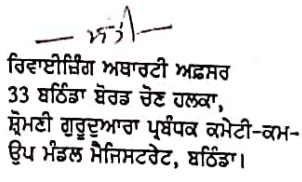 ਸਹੀ
ਰਿਵਾਈਜ਼ਿੰਗ ਅਥਾਰਟੀ ਅਫ਼ਸਰ
33 ਬਠਿੰਡਾ ਬੋਰਡ ਚੋਣ ਹਲਕਾ,
ਸ਼੍ਰੋਮਣੀ ਗੁਰੂਦੁਆਰਾ ਪ੍ਰਬੰਧਕ ਕਮੇਟੀ-ਕਮ-
ਉਪ ਮੰਡਲ ਮੈਜਿਸਟਰੇਟ, ਬਠਿੰਡਾ।